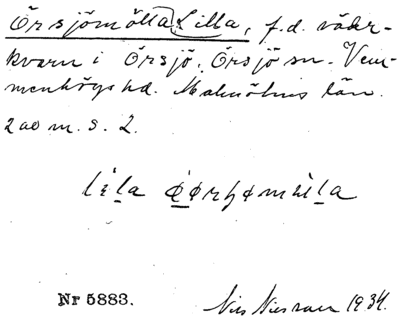 Örsjömölla, Lilla, f.d. väder-
kvarn i Örsjö, Örsjö sn. Vem-
menhögs hd. Malmöhus län.
200 m. S. 2.
lila
Nr 5883.
Nils Nilsson 1934.